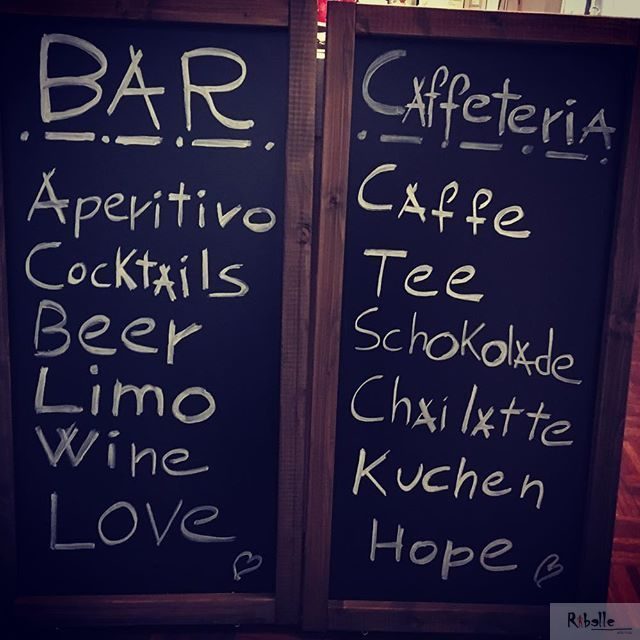 BAR
Aperitivo
Cocktails
Beer
Limo
Wine
Love
Caffeteria
Caffe
Tee
Schokolade
Chailatte
Kuchen
Hope